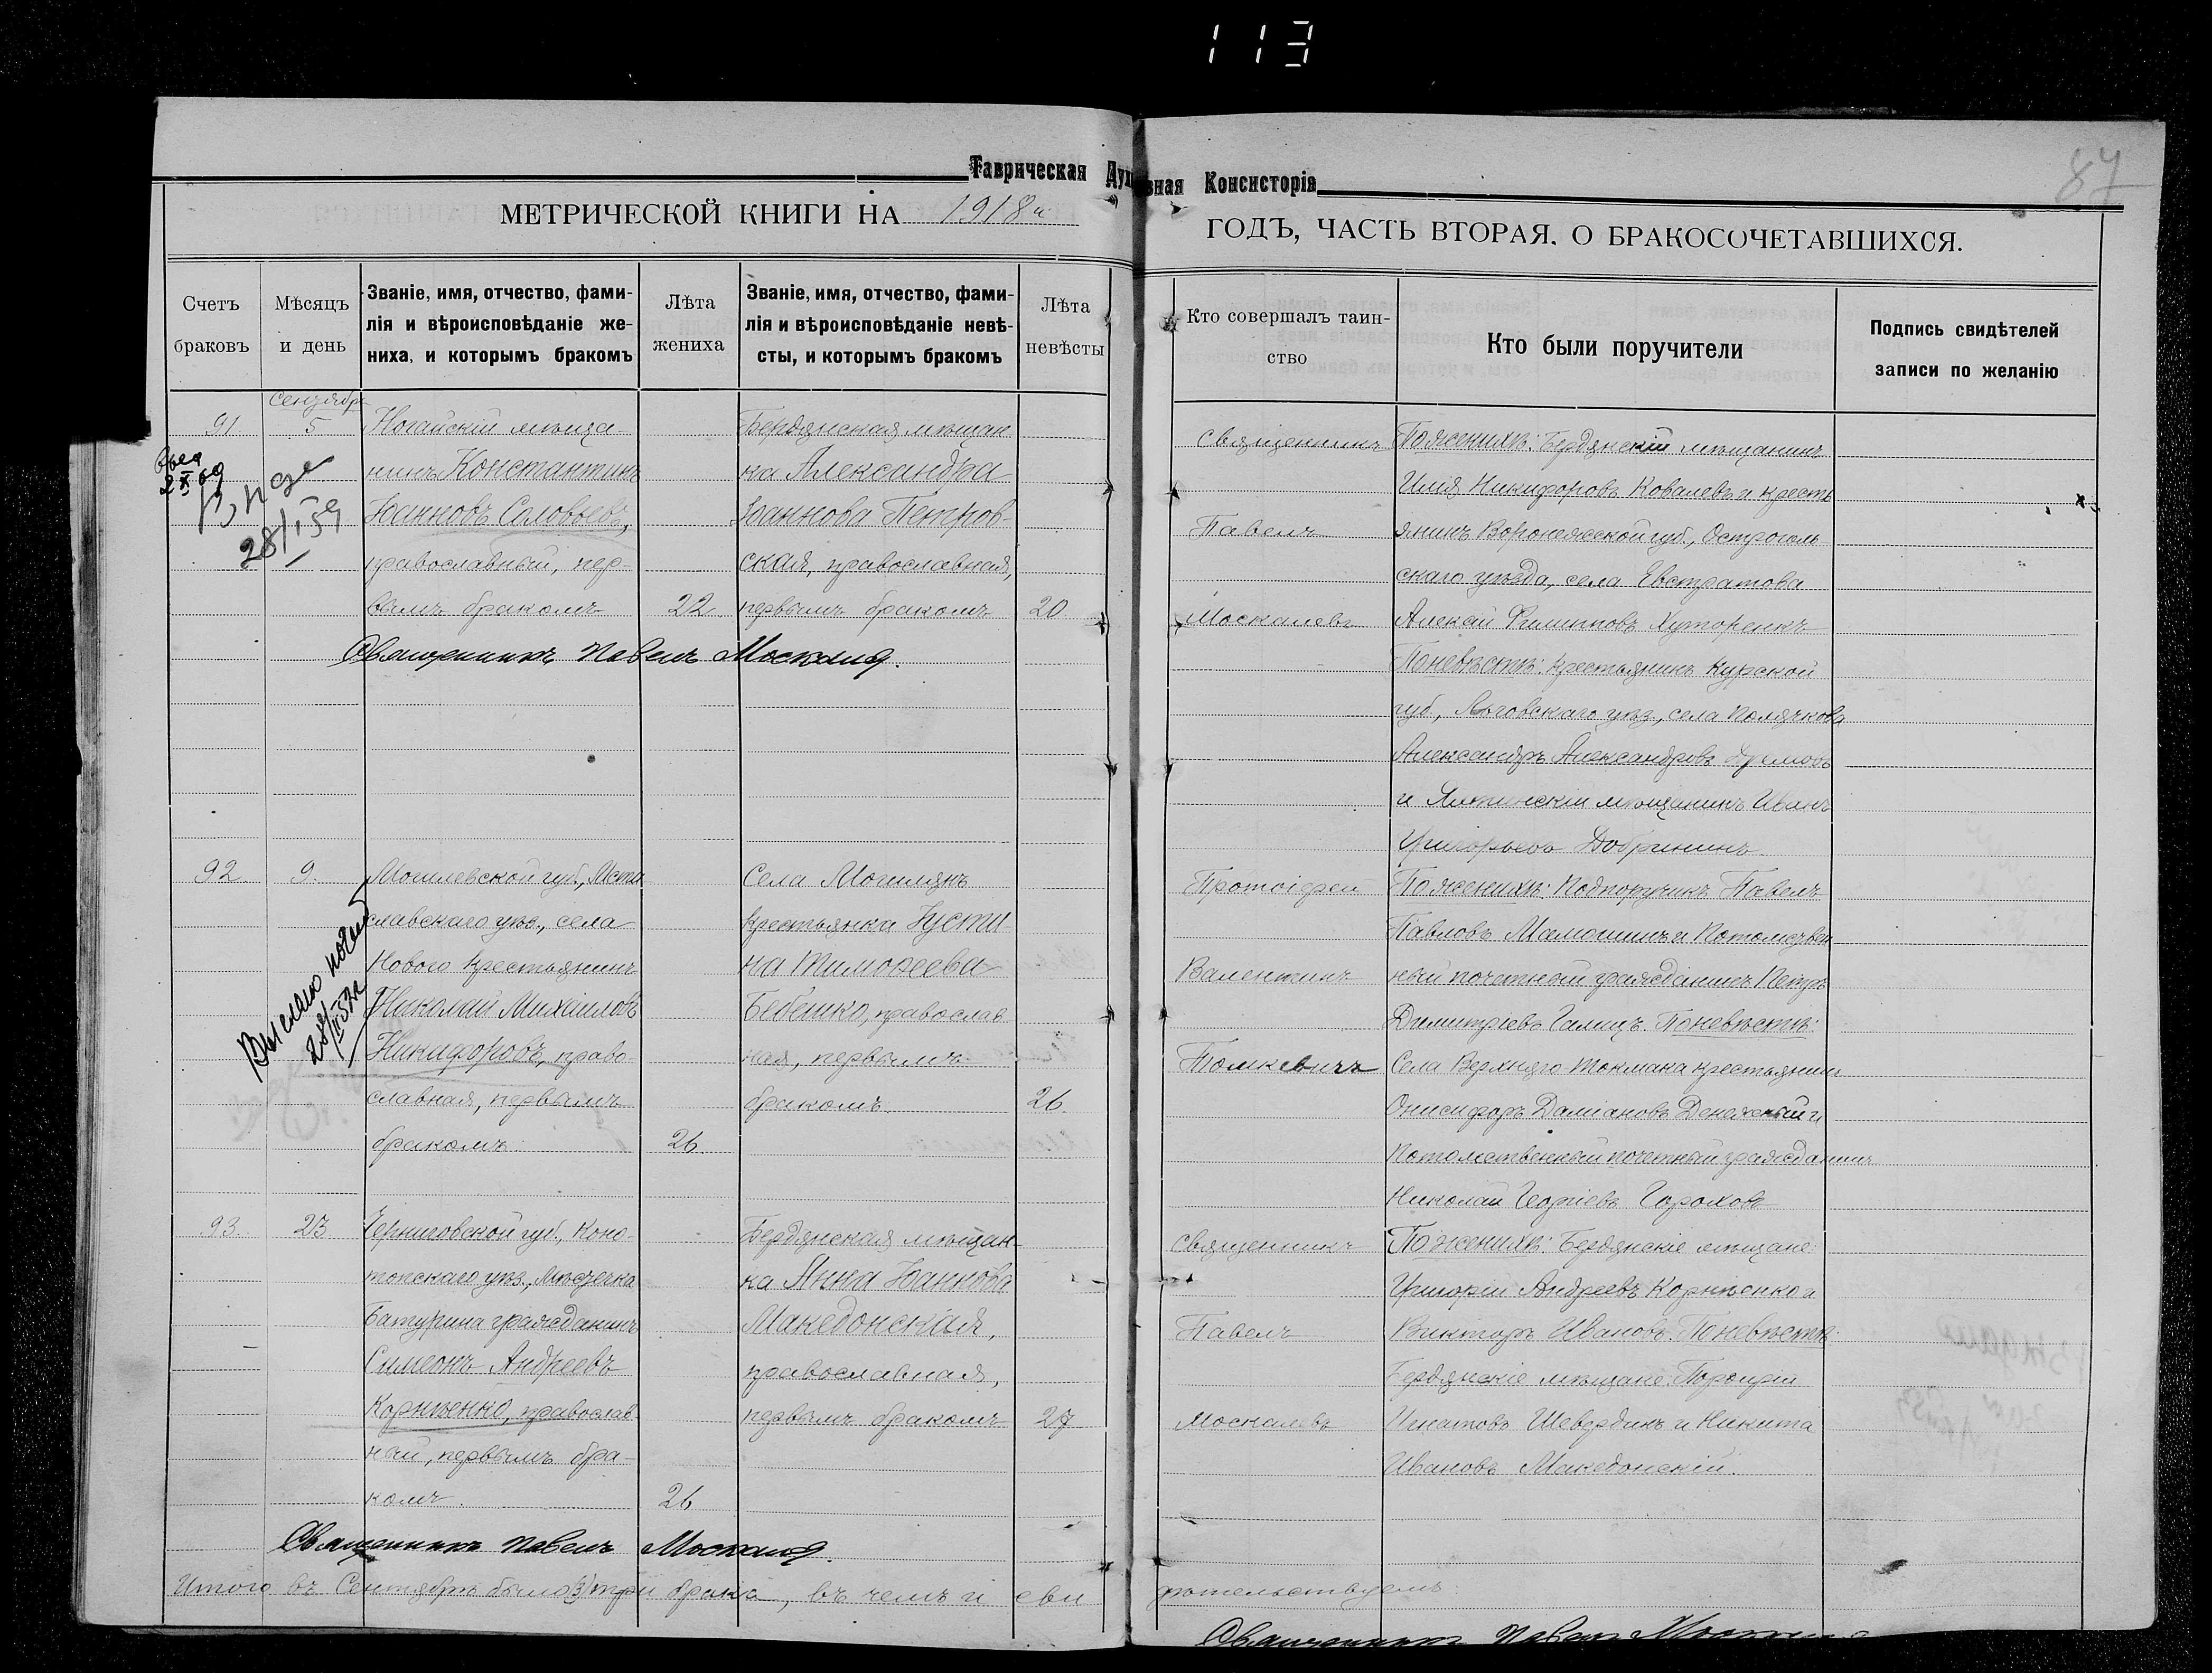 113
Таврическая Духовная Консисторія
87
МЕТРИЧЕСКОЙ КНИГИ НА 1918 г.
ГОДЪ, ЧАСТЬ ВТОРАЯ, О БРАКОСОЧЕТАВШИХСЯ.
Счетъ
браковъ
Мѣсяцъ
и день
Званіе, имя, отчество, фами-
лія и вѣроисповѣданіе же-
ниха, и которымъ бракомъ
Лѣта
жениха
Званіе, имя, отчество, фами-
лія и вѣроисповѣданіе невѣ-
сты, и которымъ бракомъ
Лѣта
невѣсты
Кто совершалъ таин-
ство
Кто были поручители
Подпись свидѣтелей
записи по желанію
91.
Сентябрь
5
Ногайскій мѣща-
нинъ Константинъ
Іоанновъ Соловьевъ,
православный, пер-
вымъ бракомъ
22
Бердянская мѣщан
ка Александра
Іоаннова Петров-
ская, православная,
первымъ бракомъ
20.
28/I 59
Священникъ Павелъ
Священникъ
Павелъ
Москалевъ
По женихѣ: Бердянскій мѣщанинъ
Илія Никифоровъ Ковалевъ и кресть
янинъ Воронежской губ., Острогож-
скаго уѣзда, села Евстратова
Алексій Филипповъ Хуторенкъ
По невѣстѣ: крестьянинъ Курской
губ., Льговскаго уѣз., села
Александръ Александровъ
и Ялтинскій мѣщанинъ Иванъ
Григорьевъ Добрининъ
92.
9.
Могилевской губ., Мсти
славскаго уѣз., села
Нового крестьянинъ
Николай Михаиловъ
Никифоровъ, право-
славная, первымъ
бракомъ.
26.
Села Могилянъ
крестьянка Іусти-
на Тимофеева
Бебешко, православ
ная, первымъ
бракомъ.
26.
Протоіерей
Валентинъ
Томкевичъ
По женихѣ: Подпоручикъ Павелъ
Павловъ Мамошинъ и Потомствен
ный почетный гражданинъ Петръ
Димитріевъ Галицъ. По невѣстѣ:
Села Верхняго Токмака крестьянинъ
Онисифоръ Даміановъ Денежный и
Потомственный почетный гражданинъ
Николай Георгіевъ Гороховъ
93.
23
Черниговской губ., Коно-
топскаго уѣз., мѣстечка
Батурина гражданинъ
Симеонъ Андреевъ
Корніенко, православ
ный, первымъ бра-
комъ.
26
Бердянская мѣщан-
ка Анна Іоаннова
Македонская,
православная,
первымъ бракомъ
27
Священникъ
Павелъ
Москалевъ
По женихѣ: Бердянскіе мѣщане:
Григорій Андреевъ Корніенко и
Викторъ Ивановъ. По невѣстѣ:
Бердянскіе мѣщане: Порфирій
Игнатовъ Шевердинъ и Никита
Ивановъ Македонскій.
Священникъ Павелъ
Итого въ Сентябрѣ было (3) три брака, въ чемъ и сви
дѣтельствуемъ:
Священникъ Павелъ